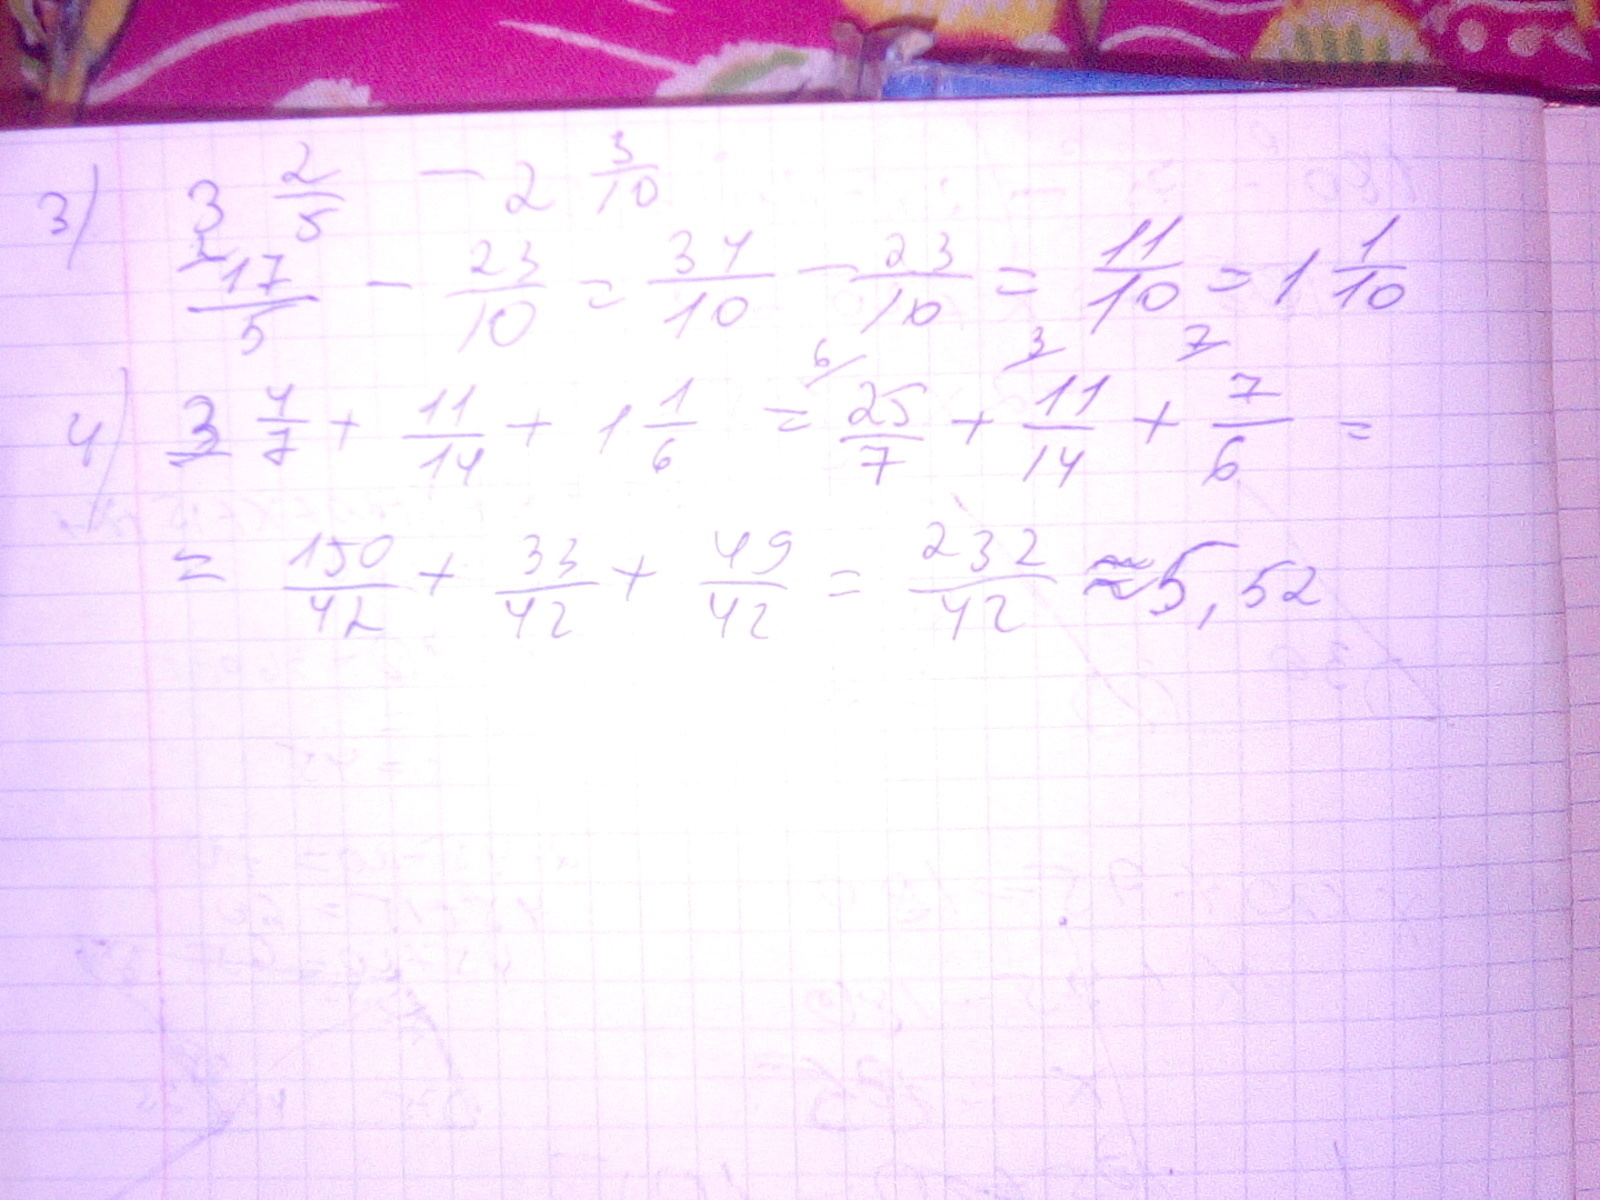 3) 3 2/5 - 2 3/10
2 17/5 - 23/10 = 34/10 - 23/10 = 11/10 = 1 1/10
6 3 7
4) 3 4/7 + 11/14 + 1 1/6 = 25/7 + 11/14 + 7/6 =
= 150/42 + 33/42 + 49/42 = 232/42 ≈ 5,52